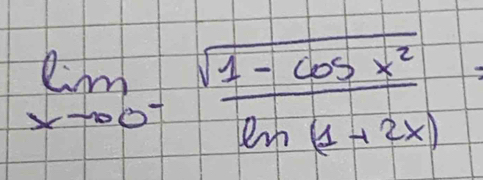 lim x→0⁻ √(1 - cos x²) / ln (1 + 2x) =